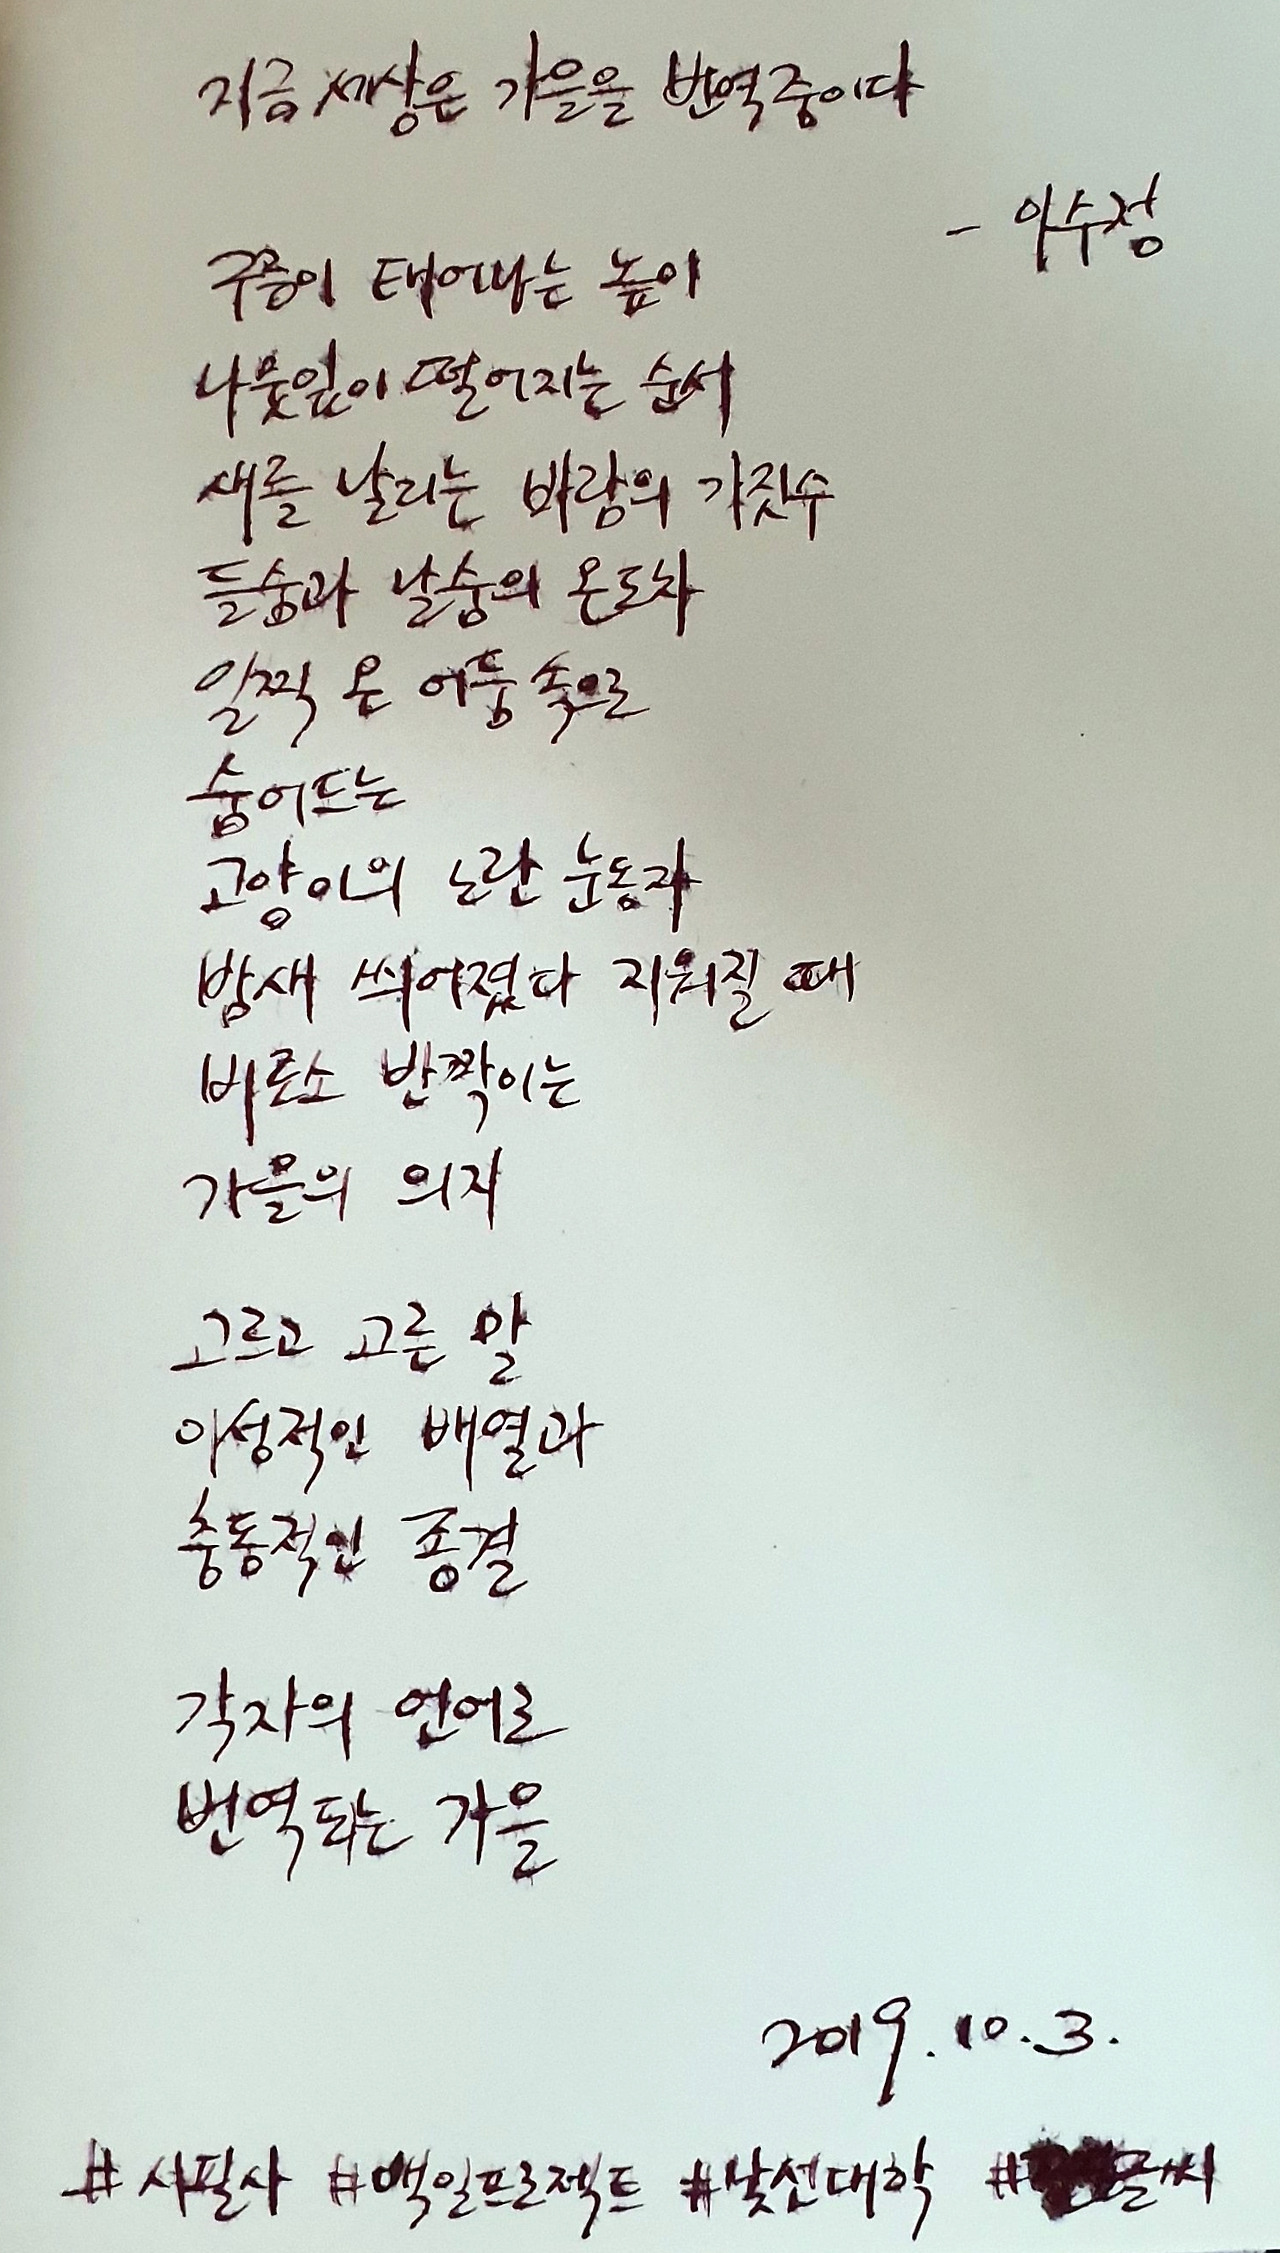 지금 세상은 가을을 번역중이다
- 이수정
구름이 태어나는 높이
나뭇잎이 떨어지는 순서
새를 날리는 바람의 가짓수
들숨과 날숨의 온도차
일찍 온 어둠 속으로
숨어드는
고양이의 노란 눈동자
밤새 씌어졌다 지워질 때
비로소 반짝이는
가을의 의지
고르고 고른 말
이성적인 배열과
충동적인 종결
각자의 언어로
번역되는 가을
2019. 10. 3.
#시필사 #백일프로젝트 #낯선대학 #글씨